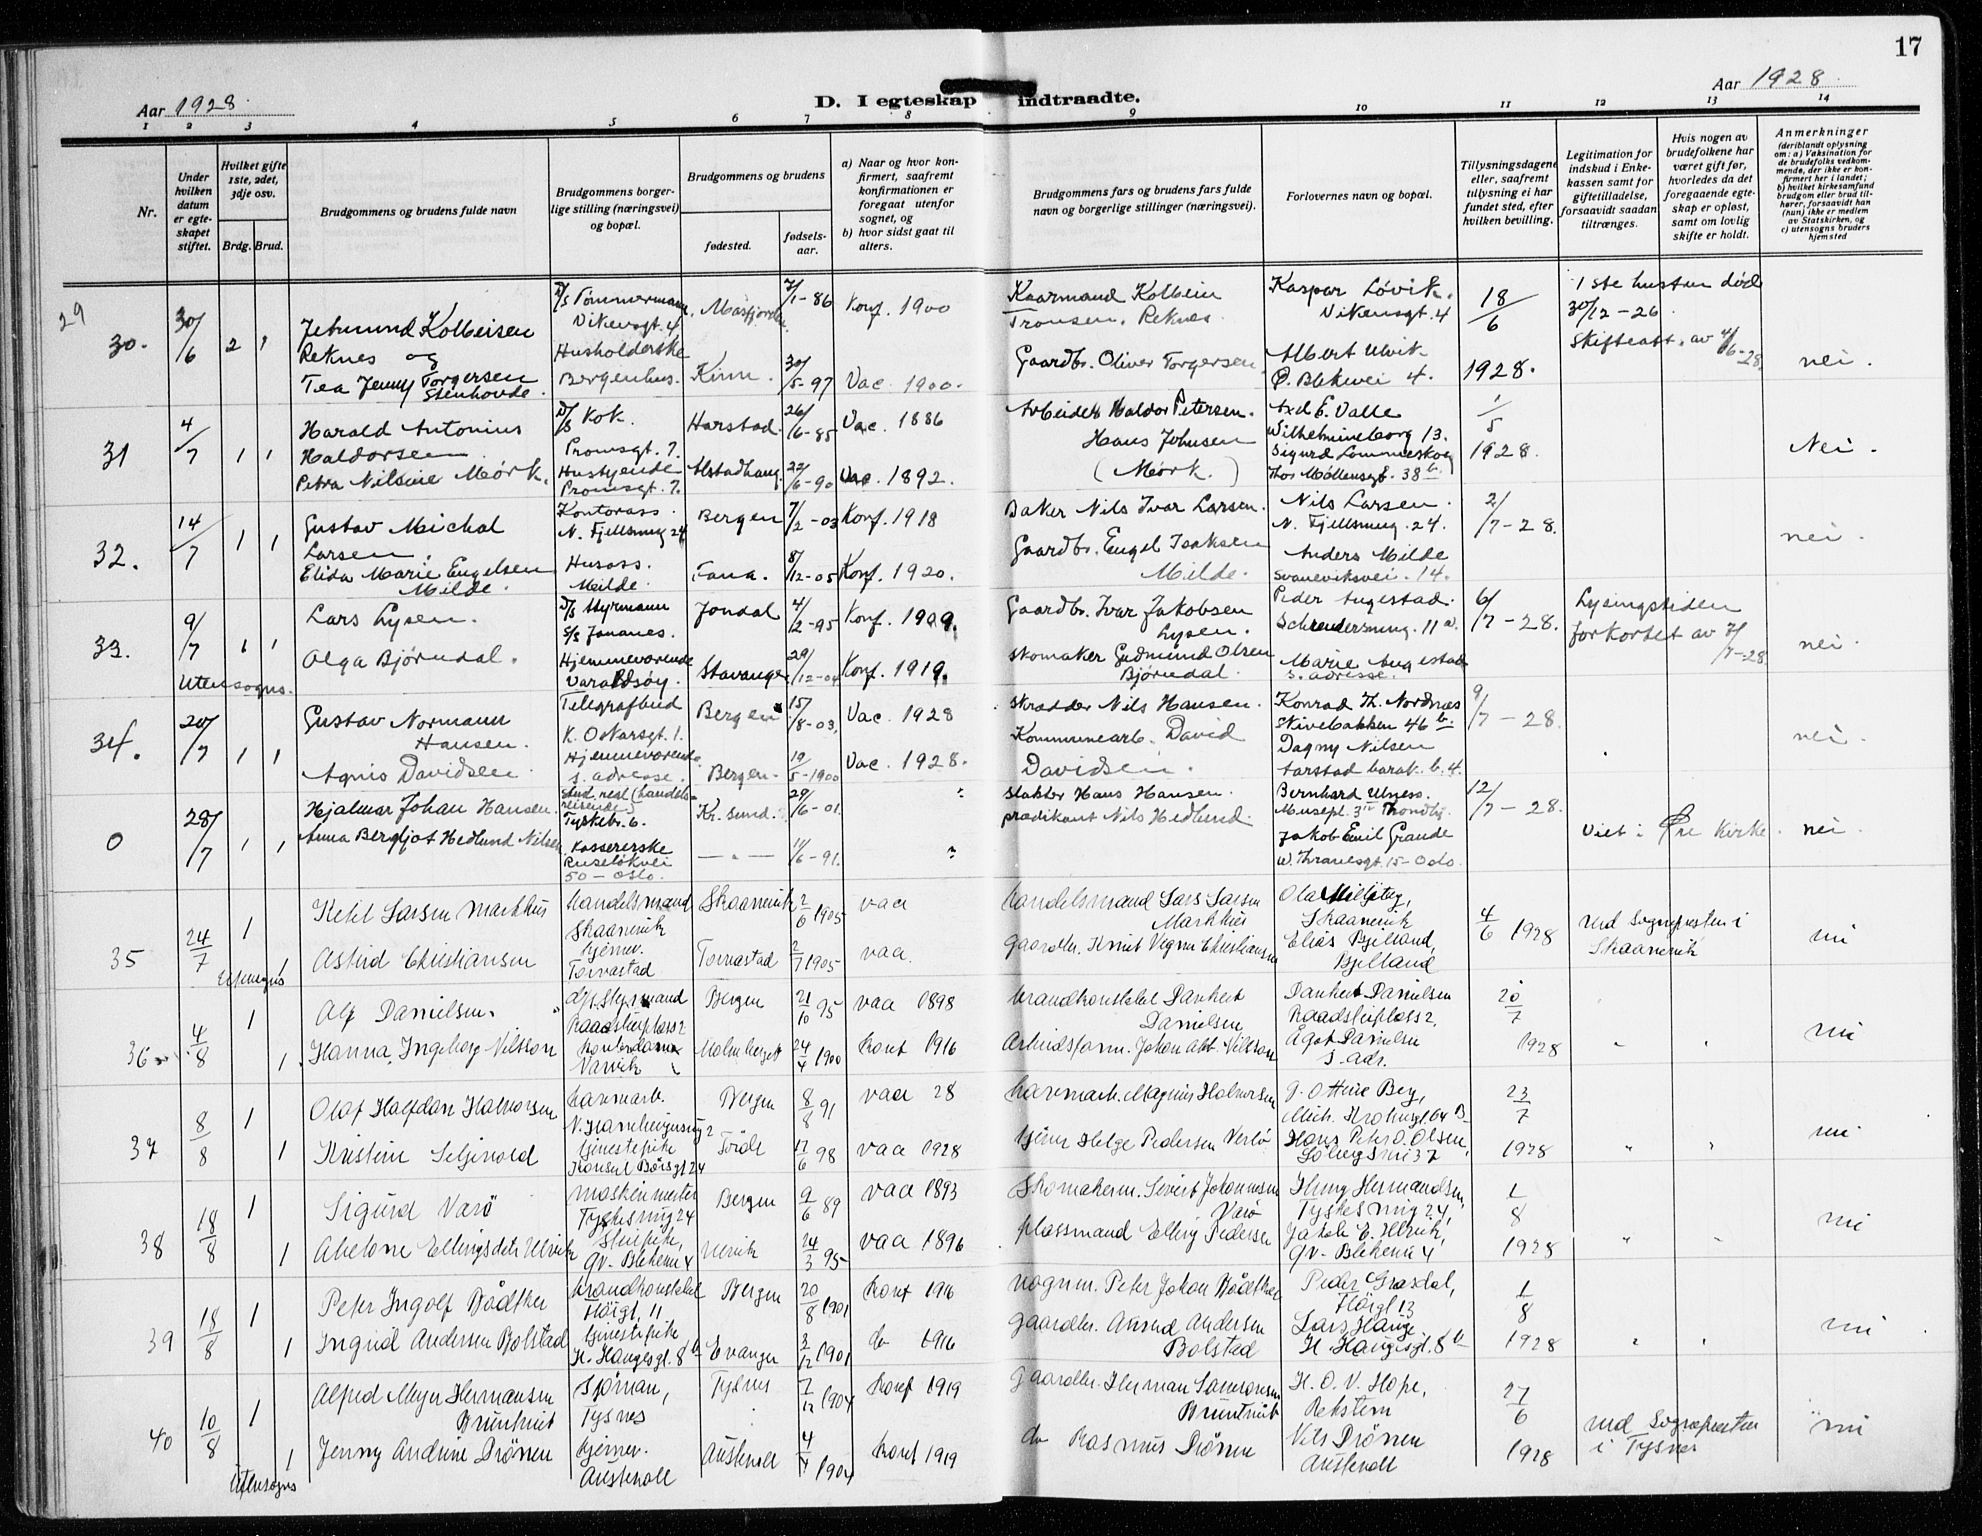 17
Aar 1928.
D. I egteskap indtraadte.
Aar 1928.
1 2 3 4 5 6 7 8 9 10 11 12 13 14
Nr.
Under hvilken datum er egte-skapet stiftet.
Hvilket gifte 1ste, 2det, 3dje osv.
Brdg. Brud.
Brudgommens og brudens fulde navn
Brudgommens borger-lige stilling (næringsvei) og bopæl.
Brudgommens og brudens
fødested.
fødsels-aar.
a) Naar og hvor kon-firmert, saafremt konfirmationen er foregaat utenfor sognet, og
b) hvor sidst gaat til alters.
Brudgommens fars og brudens fars fulde navn og borgerlige stillinger (næringsvei).
Forlovernes navn og bopæl.
Tillysningsdagene eller, saafremt tillysning ei har fundet sted, efter hvilken bevilling.
Legitimation for indskud i Enke-kassen samt for giftetilladelse, forsaavidt saadan tiltrænges.
Hvis nogen av brudefolkene har været gift før, hvorledes da det foregaaende egte-skap er opløst, samt om lovlig skifte er holdt.
Anmerkninger
(deriblandt oplysning om: a) Vaksination for de brudefolks vedkom-mende, der ikke er kon-firmert her i landet; b) hvilket kirkesamfund brudgom eller brud til-hører, forsaavidt han (hun) ikke er medlem av Statskirken, og c) utensogns bruders hjemsted
29
30. 30/6 2 1
Jetmund Kolbeisen
Reknes og
Tea Jenny Torgersen
Stenhovde.
D/s Tømmermann
Vikensgt. 4
Husholderske
Bergenhus.
Masfjorden. 7/1-86 Konf. 1900
Kinn. 30/5-97 Vac. 1900.
Kaarmand Kolbein
Tronsen. Reknes.
Gaardbr. Oliver Torgersen
Kaspar Løvik.
Vikensgt. 4
Albert Ulvik
Ø. Blekevei 4.
18/6
1928.
1ste hustru død
30/12-26.
Skifteatt. av 4/6-28.
nei.
31 4/7 1 1
Harald Antonius
Haldorsen
Petra Nilsine Mørk.
D/s Kok.
Promsgt. 7.
Hustjende
Promsgt. 7.
Harstad. 26/6-85 Vac. 1886
Alstadhaug 22/6-90 Vac. 1892.
Arbeider Haldor Petersen.
Hans Johnsen
(Mørk.)
Axel E. Valle
Wilhelmineborg 13.
Sigurd Lommeskog
Thor Møllersgt. 38 b.
1/5
1928.
Nei.
32. 14/7 1 1
Gustav Michal
Larsen.
Elida Marie Engelsen
Milde.
Kontorass.
N. Fjellsmug 24
Husass.
Milde.
Bergen 7/2-03 Konf. 1918
Fana. 8/12-05 Konf. 1920.
Baker Nils Ivar Larsen.
Gaardbr. Engel Isaksen
Milde.
Nils Larsen.
N. Fjellsmug. 24.
Anders Milde
Svaneviksvei. 14.
2/7-28.
nei.
33. 9/7 1 1
Utensogns.
Lars Lysen.
Olga Bjørndal.
D/s Styrmann
S/s Jananes.
Hjemmeværende
Varaldsøy.
Jondal 4/2-95 Konf. 1909.
Stavanger 29/12-04 Konf. 1919.
Gaardbr. Ivar Jakobsen
Lysen.
Skomaker Gudmund Olsen
Bjørndal.
Peder Augestad.
Schreudersmug. 11 a.
Marie Augestad
S. adresse.
6/7-28.
Lysingstiden
forkortet av 7/7-28.
nei.
34. 20/7 1 1
Gustav Normann
Hansen.
Agnes Davidsen.
Telegrafbud
K. Oskarsgt. 1.
Hjemmeværende
S. adresse.
Bergen 15/8-03. Vac. 1928
Bergen. 19/5-1900 Vac. 1928.
Skrædder Nils Hansen.
Kommunearb. David
Davidsen.
Konrad Th. Nordnæs
Skivebakken 46 b.
Dagny Nilsen
Aarstad barak. b. 4.
9/7-28.
nei.
0 28/7 1 1
Hjalmar Johan Hansen.
Anna Bergljot Hedlund Nilsen
Stud. rest (handels-
reisende)
Tyskebr. 6.
Kassererske
Ruseløkvei
50 - Oslo.
Kr. sund. 29/6-01. ?
— " — 11/6-91. ?
Slakter Hans Hansen.
Prædikant Nils Hedlund.
Bernhard Ulness.
Jakob Emil Grande
W. Thranesgt. 15 - Oslo.
12/7-28.
Viet i Øre Kirke.
nei.
35 24/7 1 1
Utensogns
Ketil Larsen Markhus
Astrid Christiansen
Handelsmand
Skaanevik
hjemv.
Torvastad
Skaanevik 2/6 1905 vaa
Torvastad 2/7 1905 vaa.
Handelsmand Lars Larsen
Markhus
Gaardbr. Knut Vegner Christiansen
Ola Miljeteig,
Skaanevik
Elias Bjelland,
Bjelland
4/6 1928
ved Sognepresten i
Skaanevik
nei
36 4/8 1 1.
Alf Danielsen.
Hanna Ingeborg Nilsson
d/s. Styrmand
Raadstuplass 2
Kontordame
Narvik
Bergen 21/10 95 vaa 1898
Malmberget 24/4 1900 konf 1916
Brandkonstabel Dankert
Danielsen
Arbeidsform. Johan Alb. Nilsson
Dankert Danielsen
Raadstuplass 2,
Ågot Danielsen
s. adr.
20/7
1928 " "
nei
37 8/8 1 1
Olaf Halfdan Halvorsen
Kristine Seljevold
havnearb.
tjenestepike
Konsul Børsgt 24
Bergen 8/8 91 vaa 28
17/6 98 vaa 1928
havnearb. Magnus Halvorsen
Helge Pedersen
G. Ottine Berg,
Mich. Krohnsgt. 64 B
Hans Peter O. Olsen,
23/7
1928 " "
nei
38 18/8 1 1
Sigurd Varø
Abelone Ellingsdatr Ulvik
maskinmester
Tyskesmug 24
Bergen 9/6 89 vaa 1893
24/3 95 vaa 1896
Skomakerm. Sivert Johannesen
Varø
plassmand Elling Pedersen
Henny Hermandsen,
Tyskesmug 24,
Jakob E. Ulvik,
1/8
1928 " "
nei
39 18/8 1 1
Peter Ingolf Bådtker
Ingrid Andersen Bolstad
brandkonstabel
Fløigt. 11
tjenestepike
H. Haugesgt. 8 b
Bergen 20/8 1901 konf 1916
Evanger 3/12 1901 do 1916
vognm. Peter Johan Bådtker
gaardbr. Andersen
Bolstad
Peder Grasdal,
Fløigt 13
Lars Hauge
H. Haugesgt. 8 b
1/8
1928 " "
nei
40 10/8 1 1
Utensogns
Alfred Meyer Hermansen
Bruntveit
Jenny Andrine Drønen
Sjøman,
Tysnes
hjemv.
Austevoll
Tysnes 7/12 1904 konf 1919
Austevoll 4/4 1904 konf 1919
Gaardbr. Herman Samsonsen
Bruntveit
do Rasmus Drønen
H. O. V. Hope,
Rekstern
Nils Drønen
Austevoll
27/6
1928
ved Sognepresten
i Tysnes
nei